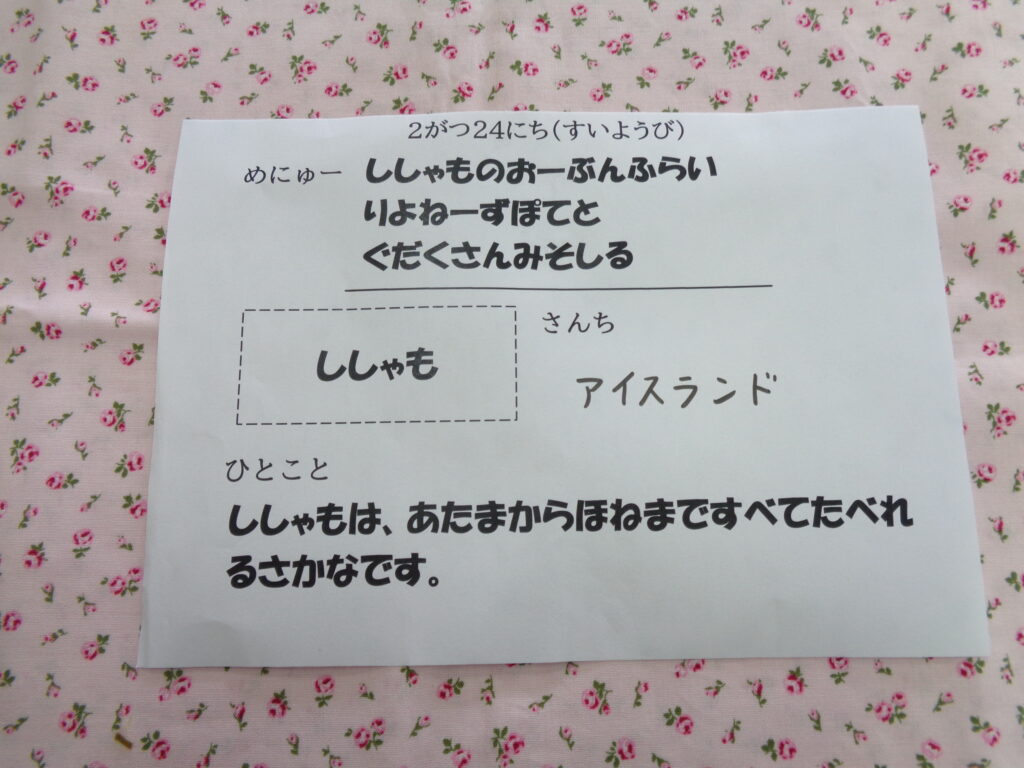 2がつ24にち(すいようび)
めにゅー ししゃものおーぶんふらい
りよねーずぽてと
ぐだくさんみそしる
ししゃも
さんち
アイスランド
ひとこと
ししゃもは、あたまからほねまですべてたべれ
るさかなです。